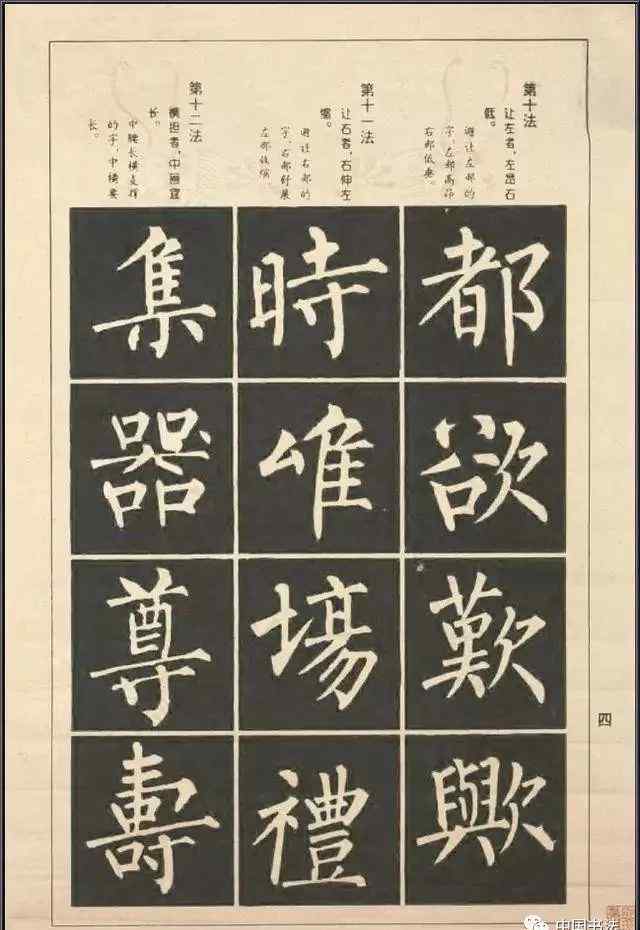 第十法
让左者，左昂右
低。
避让左部的
字，左部高昂
右部低垂。
都
欲
歎
歟
第十一法
让右者，右伸左
缩。
避让右部的
字，右部舒展
左部收缩。
時
唯
場
禮
第十二法
横担者，中画宜
长。
中腰长横支撑
的字，中横要
长。
集
器
尊
壽
四
中国书法